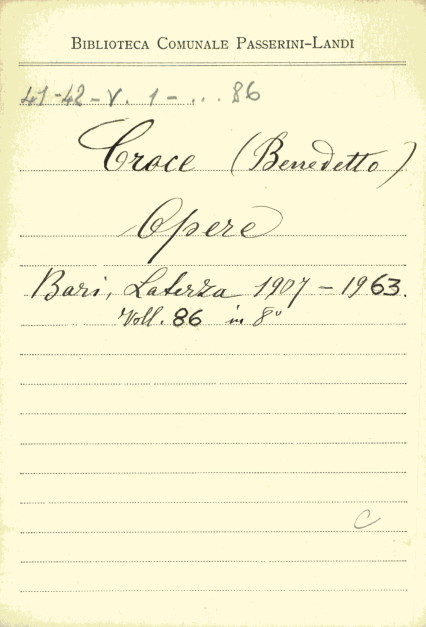 BIBLIOTECA COMUNALE PASSERINI-LANDI
41-42-V. 1-... 86
Croce (Benedetto)
Opere
Bari, Laterza 1907-1963.
Voll. 86 in 8º
C